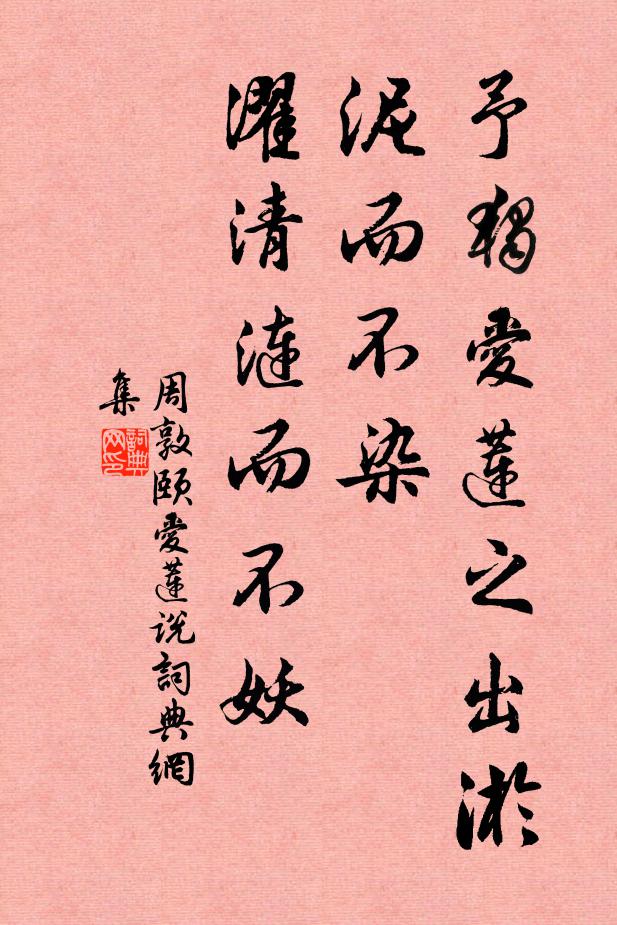 予獨愛蓮之出淤
泥而不染
濯清漣而不妖
周敦頤愛蓮説詞典網
集
詞典
网印